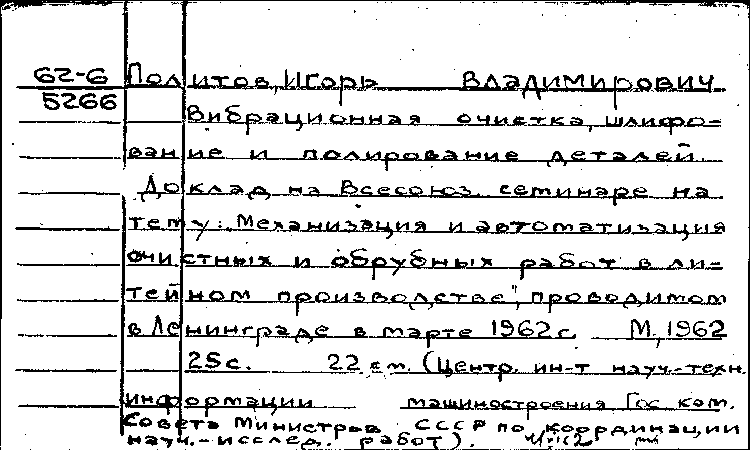 62-6 Политов, Игорь Владимирович
5266
Вибрационная очистка, шлифо-
вание и полирование деталей.
Доклад на Всесоюз. семинаре на
тему: „Механизация и автоматизация
очистных и обрубных работ в ли-
тейном производстве", проводимом
в Ленинграде в марте 1962 г. М, 1962
25 с. 22 см. (Центр. ин-т науч.-техн.
информации машиностроения Гос ком.
Совета Министров СССР по координации
науч.-исслед. работ).